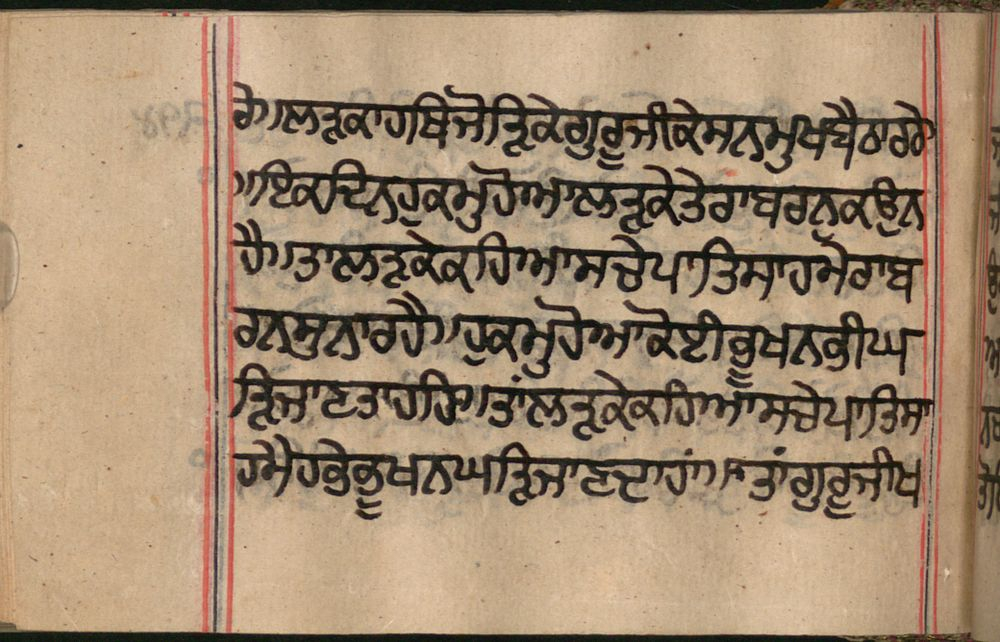 ਰੇ॥ਲੜਕਾਹਥਿਜੋੜਿਕੇਗੁਰੂਜੀਕੇਸਨਮੁਖਬੈਠਾਰਹੇ
॥ਇਕਦਿਨਹੁਕਮੁਹੋਆਲੜਕੇਤੇਰਾਬਰਨੁਕਉਨ
ਹੈ॥ਤਾਲੜਕੇਕਹਿਆਸਚੇਪਾਤਿਸਾਹਮੇਰਾਬ
ਰਨਸੁਨਾਰਹੈ॥ਹੁਕਮੁਹੋਆਕੋਈਭੂਖਨਭੀਘ
ੜਿਜਾਣਤਾਹਹਿ॥ਤਾਂਲੜਕੇਕਹਿਆਸਚੇਪਾਤਿਸਾ
ਹਮੈਹਭੇਭੂਖਨਘੜਿਜਾਣਦਾਹਾਂ॥ਤਾਂਗੁਰੂਜੀਖ